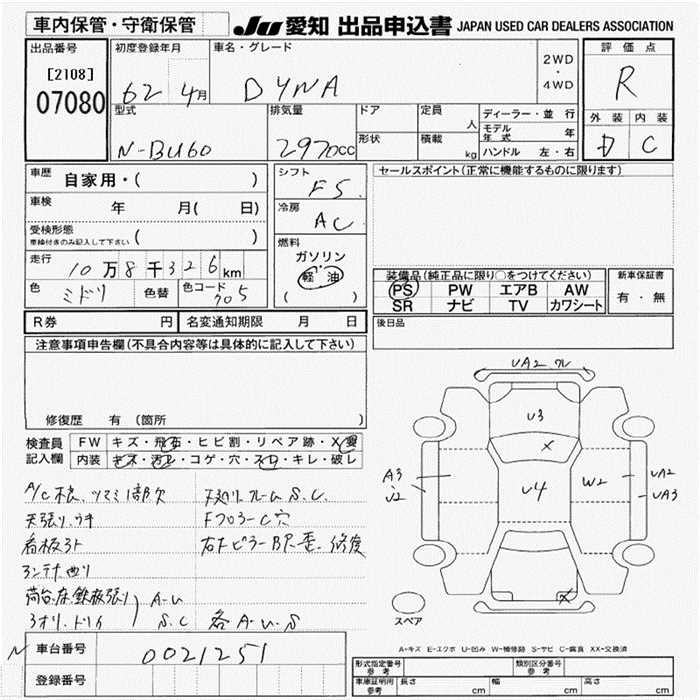 車内保管・守衛保管
JU 愛知 出品申込書 JAPAN USED CAR DEALERS ASSOCIATION
出品番号
[2108]
07080
初度登録年月
62 4月
車名・グレード
DYNA
2WD
・
4WD
評価点
R
外装 内装
D C
型式
N-BU60
排気量
2970cc
ドア
形状
定員
人
積載
kg
ディーラー・並行
モデル年式 年
ハンドル 左・右
車歴 自家用・( )
車検 年 月( 日)
受検形態
車検付きのみ記入して下さい ( )
走行 10万8千326km
色 ミドリ 色替 色コード 705
シフト
F5
冷房
AC
燃料
ガソリン
・
軽油
( )
セールスポイント(正常に機能するものに限ります)
装備品(純正品に限り○をつけてください)
PS PW エアB AW
SR ナビ TV カワシート
新車保証書
有・無
後日品
R券 円 名変通知期限 月 日
注意事項申告欄(不具合内容等は具体的に記入して下さい)
修復歴 有 (箇所 )
検査員
記入欄
FW キズ・飛石・ヒビ割・リペア跡・X要
内装 キズ・汚れ・コゲ・穴・スレ・キレ・破レ
A/C 不良、ツマミ1部欠
天張り、ウキ
看板ヌト
コンテナ曲り
荷台、床、鉄板張り
3オリ、ドリル
A-U
S.C
下廻り フレーム S.C.
Fフロアー C穴
右Fピラー BP歪 修復
各 A.U.S
UA2 ワレ
U3
X
A3
U2
U4
W2
UA2
UA3
X
スペア
A-キズ E-エクボ U-凹み W-補修跡 S-サビ C-腐食 XX-交換済
N
車台番号 0021251
登録番号
形式指定番号
参考
類別区分番号
参考
車庫証明用
参考
長さ cm 幅 cm 高さ cm